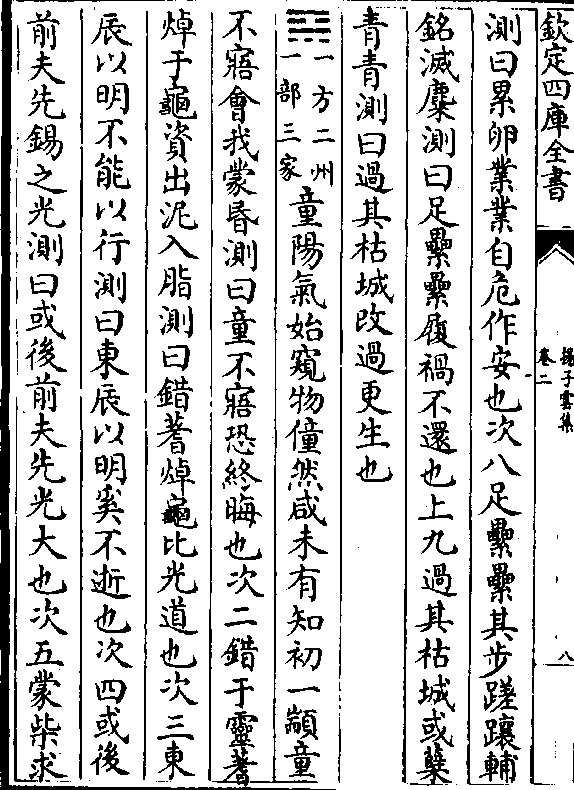 欽定四庫全書
揚子雲集
卷二
八
測曰累卵業業自危作安也次八足㬪㬪其步蹉躟輔
銘滅麋測曰足㬪㬪履禍不還也上九過其枯城或蘖
青青測曰過其枯城改過更生也
一方二州
一部三家
童陽氣始窺物僮然咸未有知初一顓童
不寤會我蒙昬測曰童不寤恐終晦也次二錯于靈蓍
焯于龜資出泥入脂測曰錯蓍焯龜比光道也次三東
辰以明不能以行測曰東辰以明奚不逝也次四或後
前夫先錫之光測曰或後前夫先光大也次五蒙柴求